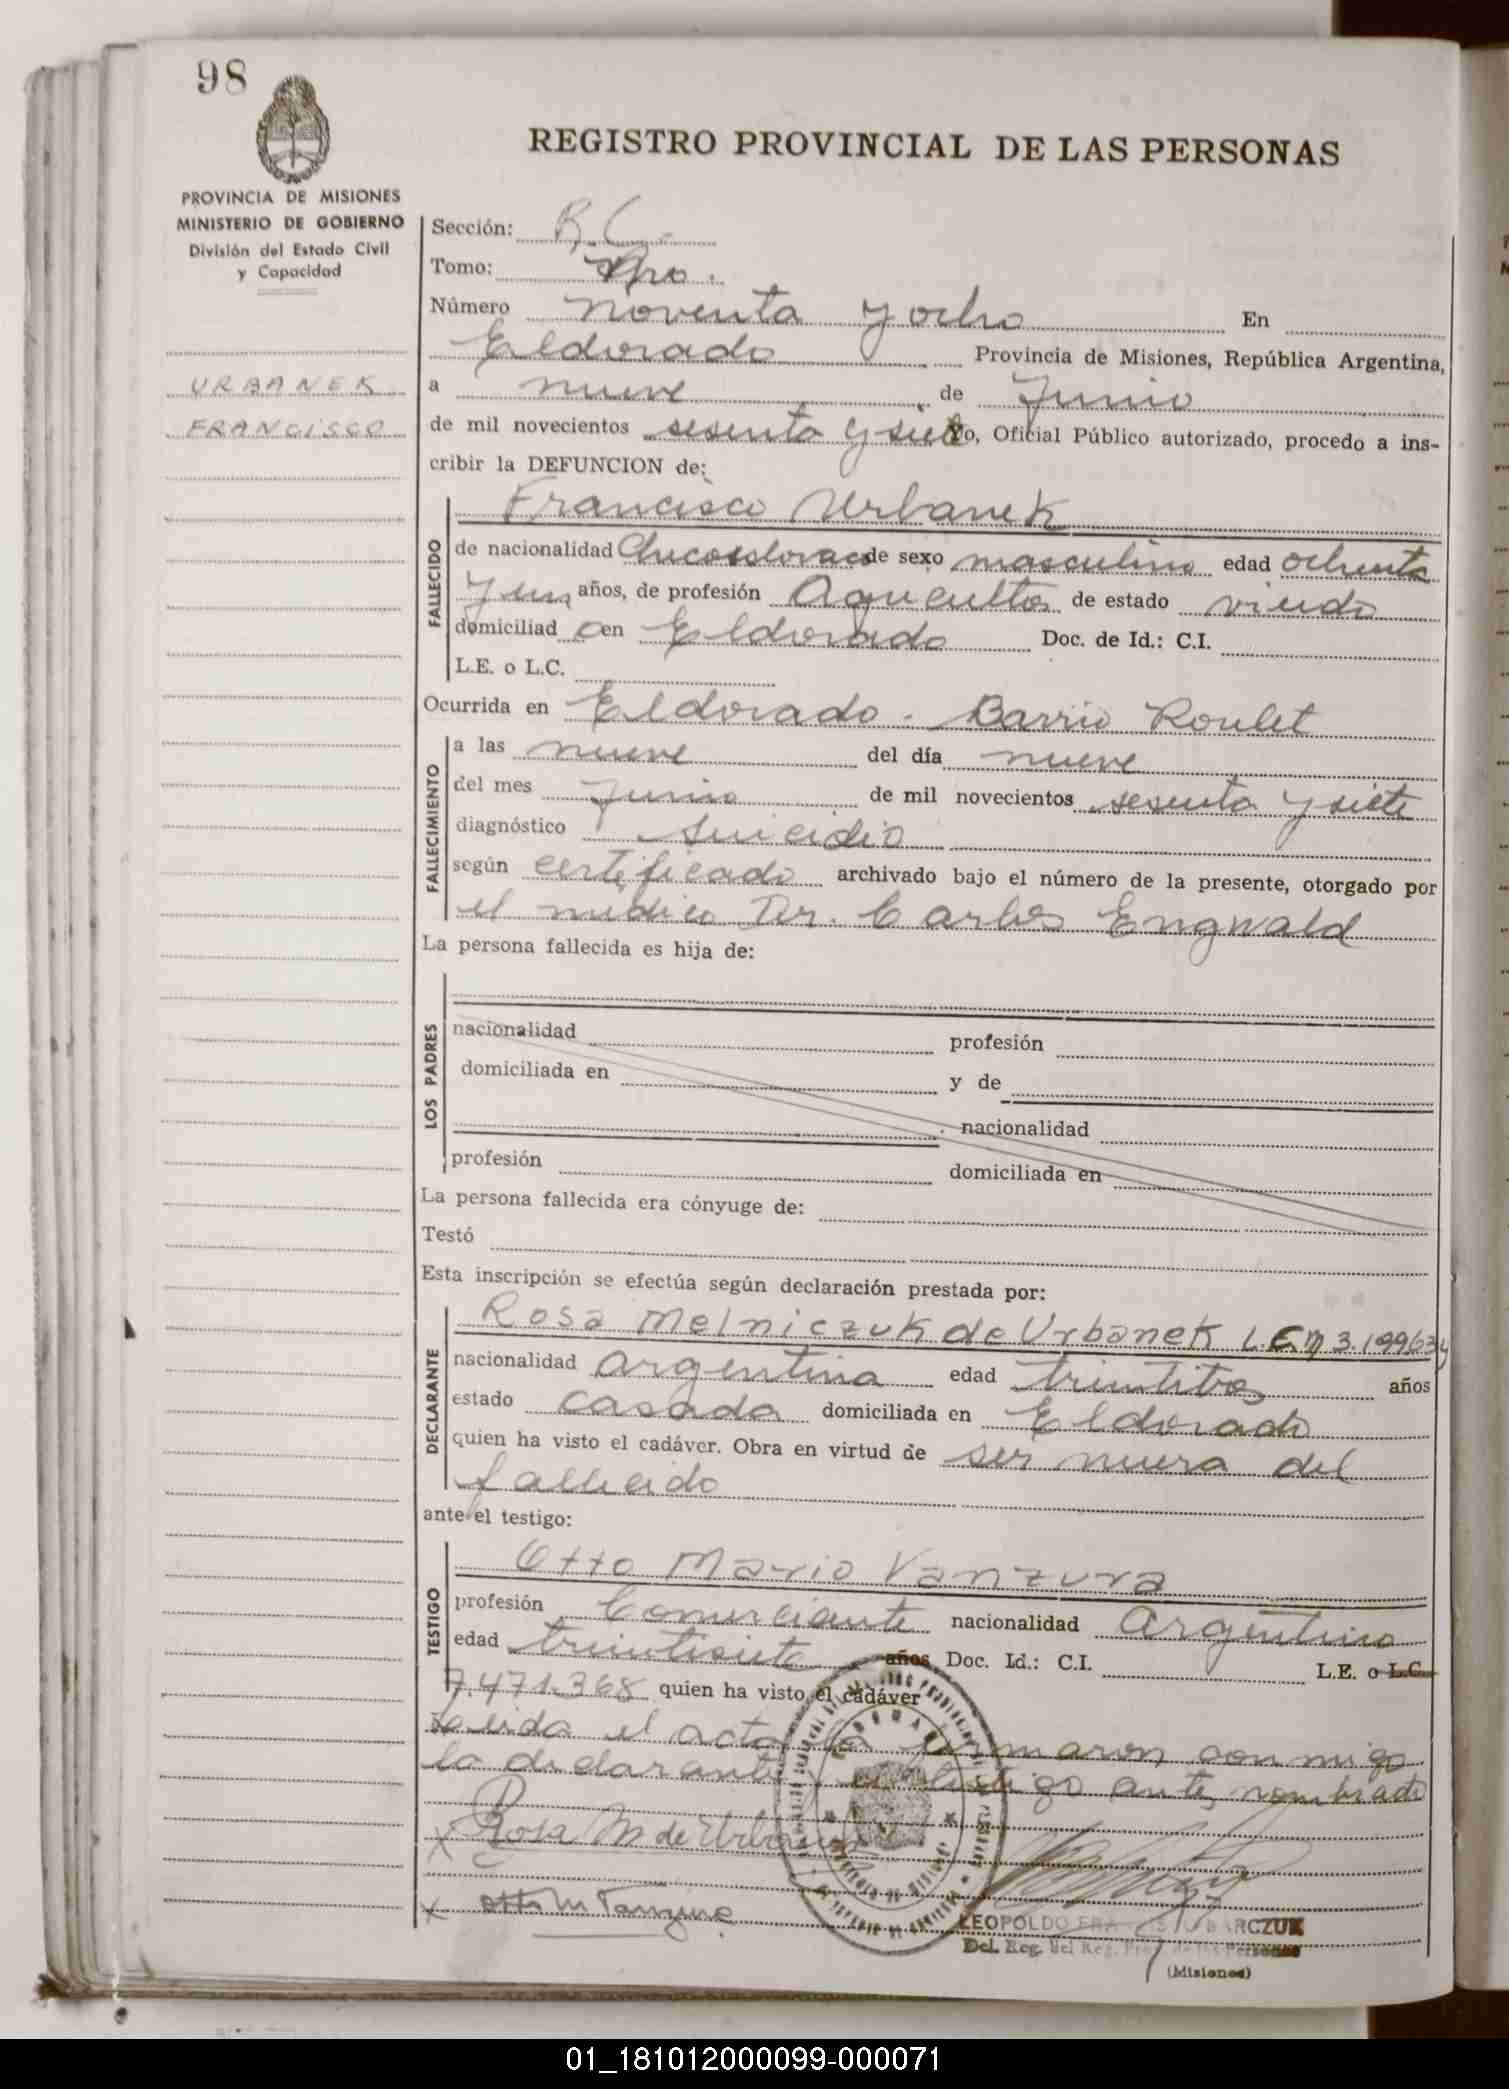 98
REGISTRO PROVINCIAL DE LAS PERSONAS
PROVINCIA DE MISIONES
MINISTERIO DE GOBIERNO
División del Estado Civil
y Capacidad
URBANEK
FRANCISCO
Sección: R.C.
Tomo: 1ro.
Número noventa y ocho En
Eldorado Provincia de Misiones, República Argentina,
a nueve de Junio
de mil novecientos sesenta y siete Yo, Oficial Público autorizado, procedo a ins-
cribir la DEFUNCION de:
FALLECIDO
Francisco Urbanek
de nacionalidad Checoslovaco de sexo masculino edad ochenta
y un años, de profesión Agricultor de estado viudo
domiciliado en Eldorado Doc. de Id.: C.I.
L.E. o L.C.
Ocurrida en Eldorado - Barrio Roulet
FALLECIMIENTO
a las nueve del día nueve
del mes Junio de mil novecientos sesenta y siete
diagnóstico Suicidio
según certificado archivado bajo el número de la presente, otorgado por
el médico Dr. Carlos Engwald
La persona fallecida es hija de:
LOS PADRES
nacionalidad profesión
domiciliada en y de
nacionalidad
profesión domiciliada en
La persona fallecida era cónyuge de:
Testó
Esta inscripción se efectúa según declaración prestada por:
DECLARANTE
Rosa Melniczuk de Urbanek L.C. Nº 3.199634
nacionalidad argentina edad treintitres años
estado casada domiciliada en Eldorado
quien ha visto el cadáver. Obra en virtud de ser nuera del
fallecido
ante el testigo:
TESTIGO
Otto Mario Vanzura
profesión Comerciante nacionalidad Argentino
edad treintisiete años Doc. Id.: C.I. L.E. o L.C.
7.471.368 quien ha visto el cadáver
Leida el acta la firmaron conmigo
la declarante y el testigo antes nombrado
x Rosa M de Urbanek
x Otto M Vanzura
LEOPOLDO
Del. Reg. del Reg. Prov. de las Personas
(Misiones)
01_181012000099-000071